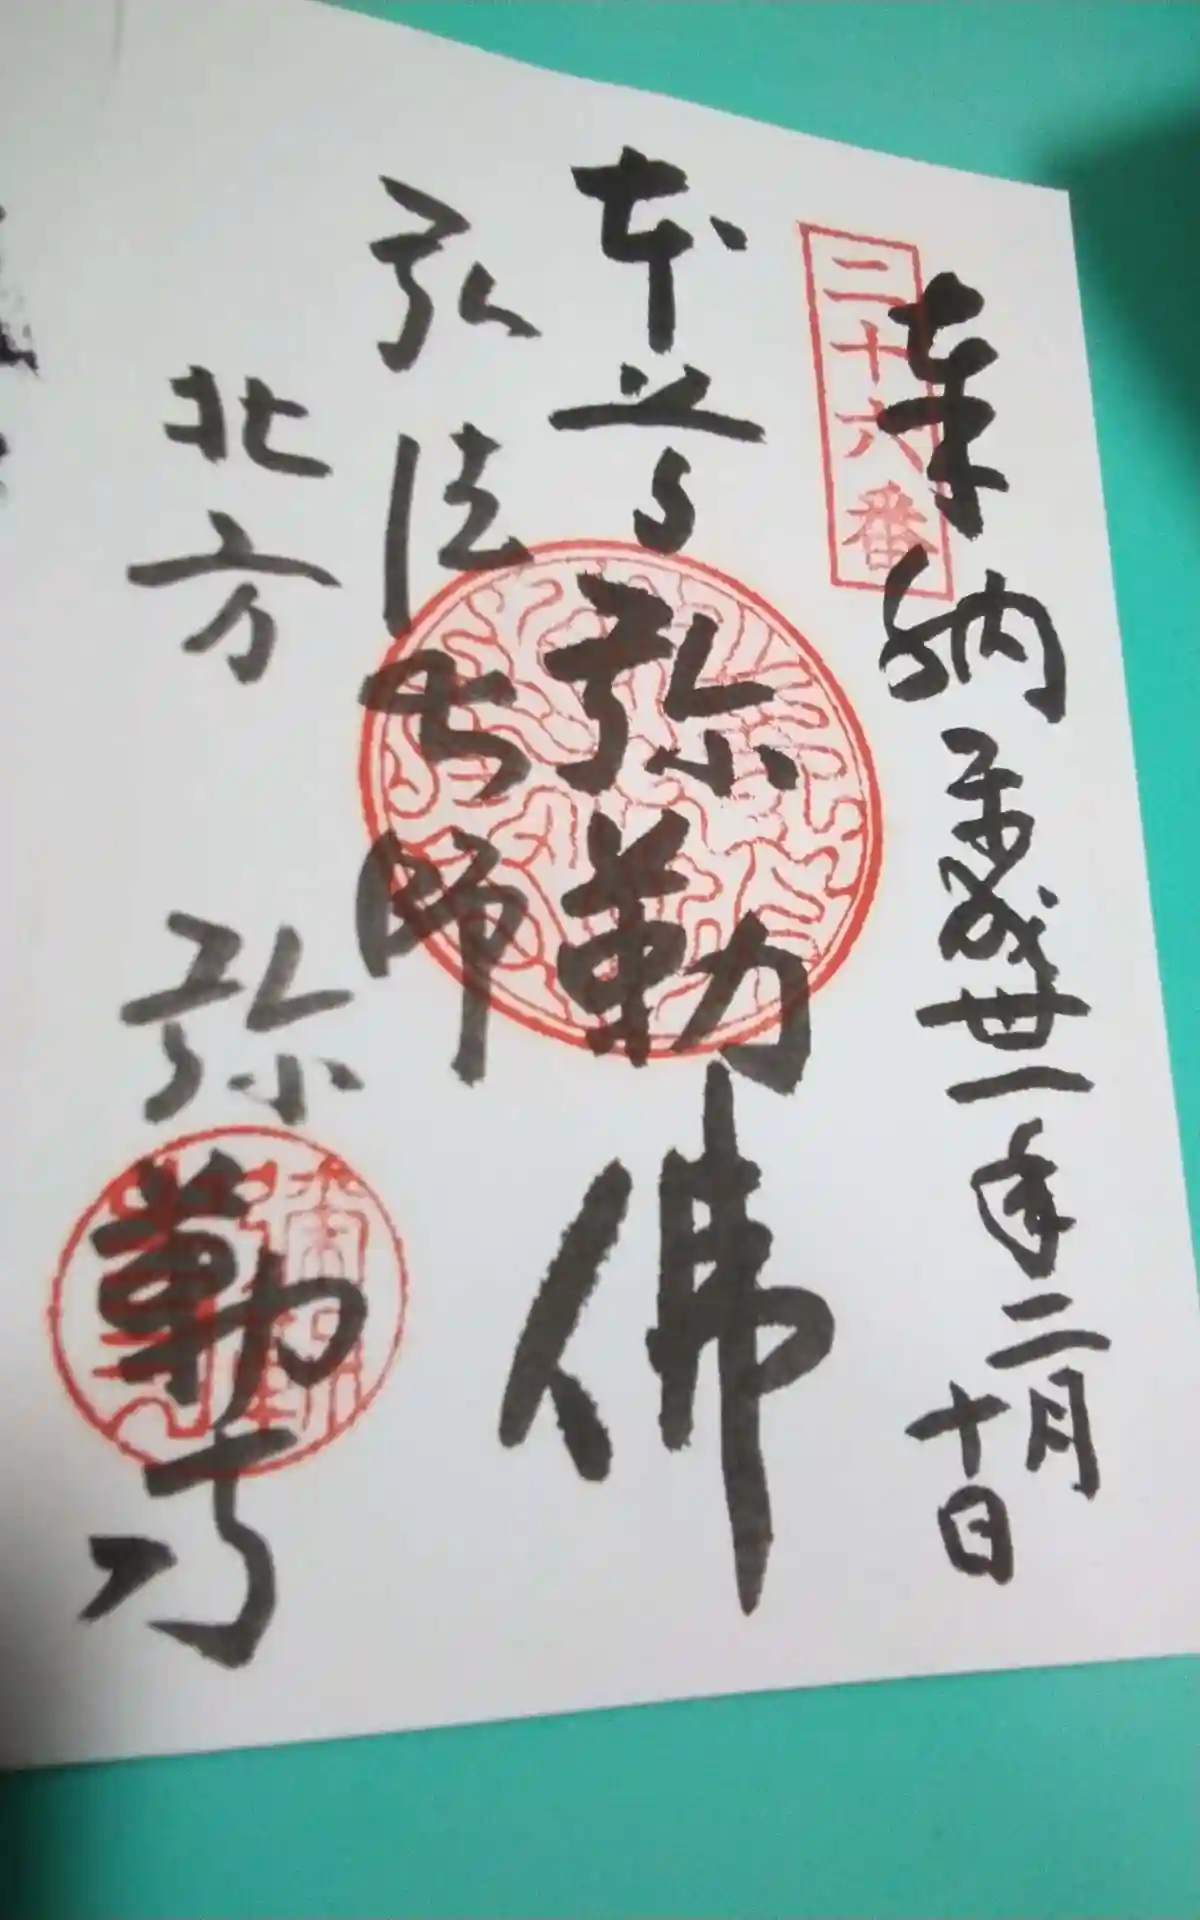 二十六番
奉納 平成卅一年二月
十日
本尊 弥勒佛
弘法大師
北方 弥勒寺